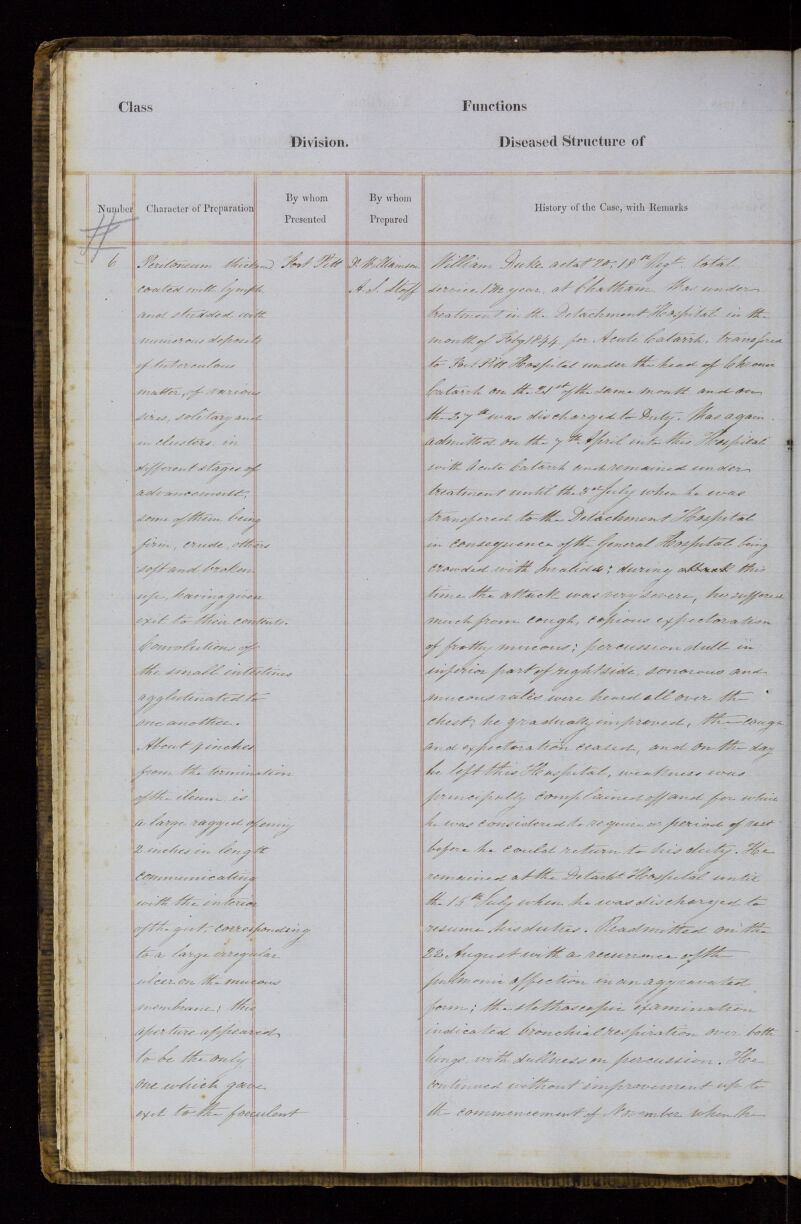 Class
Functions
Division.
Diseased Structure of
Number
Character of Preparation
By whom
Presented
By whom
Prepared
History of the Case, with Remarks
6
Peritoneum thickened
coated with lymph
and studded with
numerous deposits
of tuberculous
matter, of various
sizes, solitary and
in clusters in
different stages of
advancement;
some of them being
firm, crude, others
soft and broken
up, having given
exit to their contents.
Convolutions of
the small intestines
agglutinated to
one another.
About 4 inches
from the termination
of the ileum is
a large ragged opening
2 inches in length
communicating
with the interior
of the gut, corresponding
to a large irregular
ulcer on the mucous
membrane; this
aperture appeared
to be the only
one which gave
exit to the foeculent
Fort Pitt
Dr Williamson
A.S. Staff
William Duke aetat 20; 18th Regt. total
service 1 year at Chatham. Was under
treatment in the Detachment Hospital in the
month of Feby 1844 for Acute Catarrh. transfered
to Fort Pitt Hospital under the head of Chronic
Catarrh on the 21st of the same month and on
the 27th was discharged to Duty. Was again
admitted on the 7th April into this Hospital
with Acute Catarrh and remained under
treatment until the 3rd July when he was
transfered to the Detachment Hospital
in consequence of the General Hospital being
crowded with Invalids; during attack this
time the attack was very severe, he suffered
much from cough, copious expectoration
of frothy mucous; percussion dull in
inferior part of right side, sonorous and
mucous rales were heard all over the
chest; he gradually improved, the cough
and expectoration ceased, and on the day
he left this Hospital, weakness was
principally complained off and for which
he was considered to require a period of rest
before he could return to his duty. He
remained at the Detacht Hospital until
the 15th July when he was discharged to
resume his duties. Readmitted on the
22 August with a recurrence of the
pulmonic affection in an aggravated
form; the stethoscopic examination
indicated bronchial respiration over both
lungs with dullness on percussion. He
continued without improvement up to
the commencement of November when he